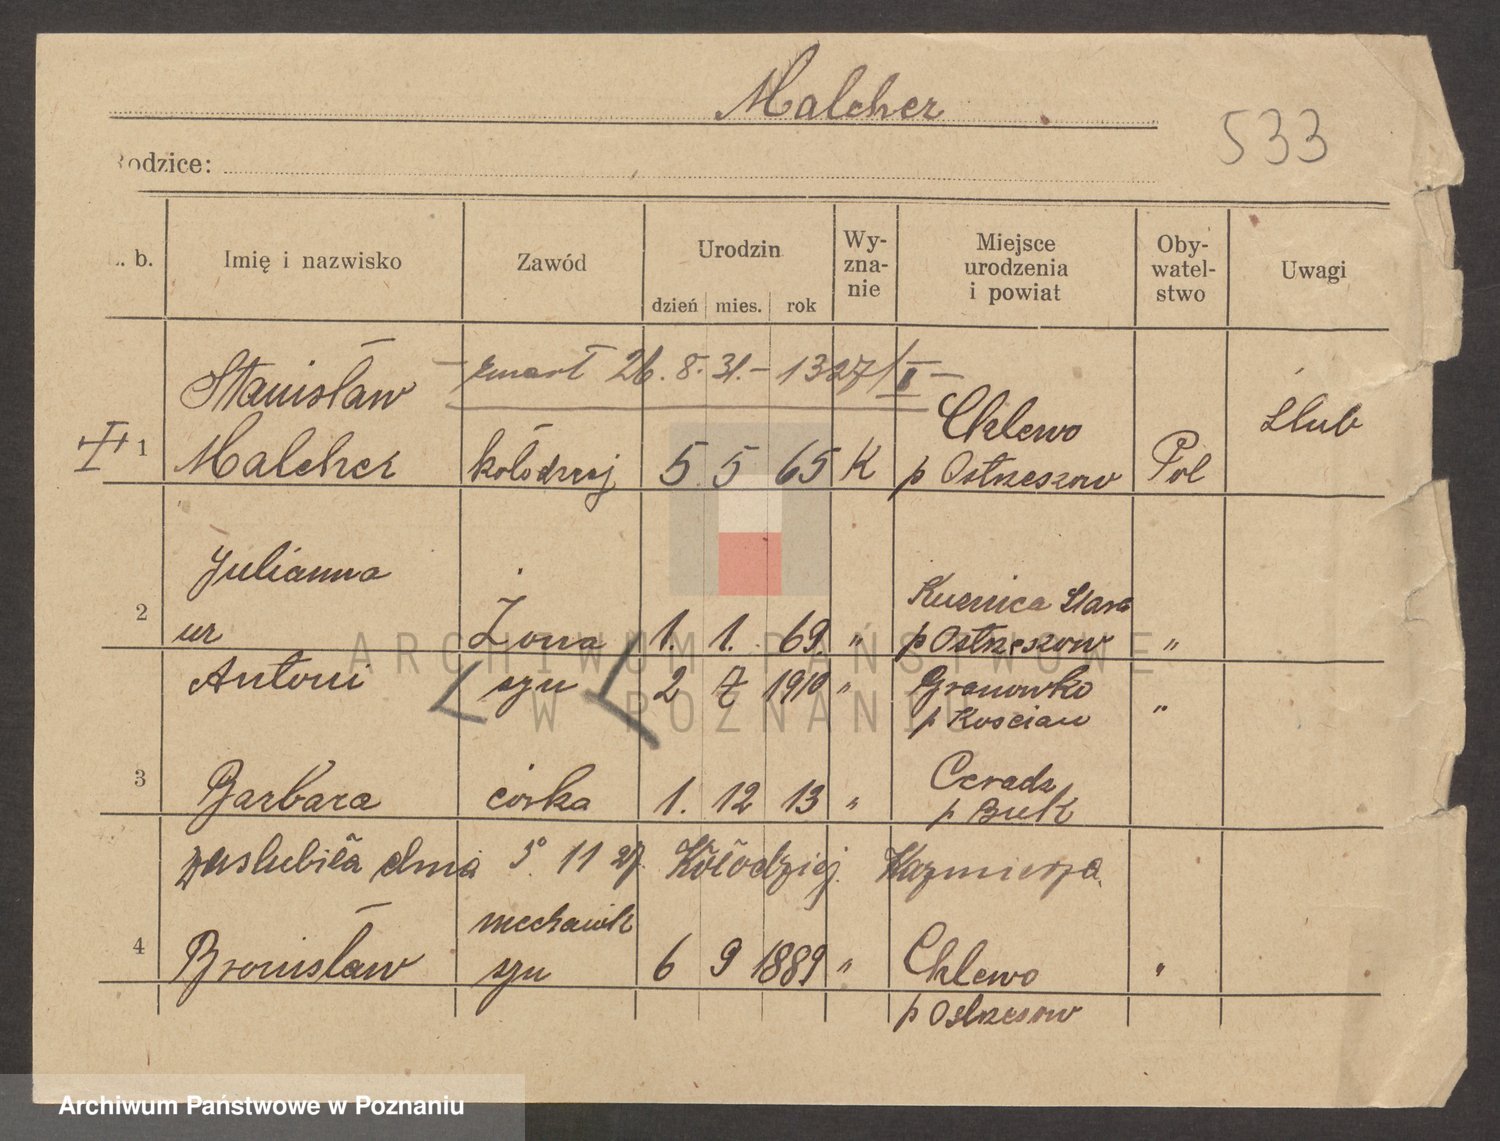 Malcher
533
Rodzice:
L. b. Imię i nazwisko Zawód Urodzin dzień mies. rok Wy-zna-nie Miejsce urodzenia i powiat Oby-watel-stwo Uwagi
zmarł 26. 8. 31. – 1327/II –
1 Stanisław Malcher kołodziej 5 5 65 K Chlewo p Ostrzeszow Pol Slub
2 Julianna ur Żona 1. 1. 69. " Kuznica Stara p Ostrzeszow "
Antoni syn 2 7 1910 " Granowko p Koscian "
3 Barbara córka 1. 12 13 " Ceradz p Buk
zaslubiła dnia 5. 11 27. Kołodziej Kazmierza
4 Bronisław mechanik syn 6 9 1889 " Chlewo p Ostrzesow "
ARCHIWUM PAŃSTWOWE
W POZNANIU
Archiwum Państwowe w Poznaniu